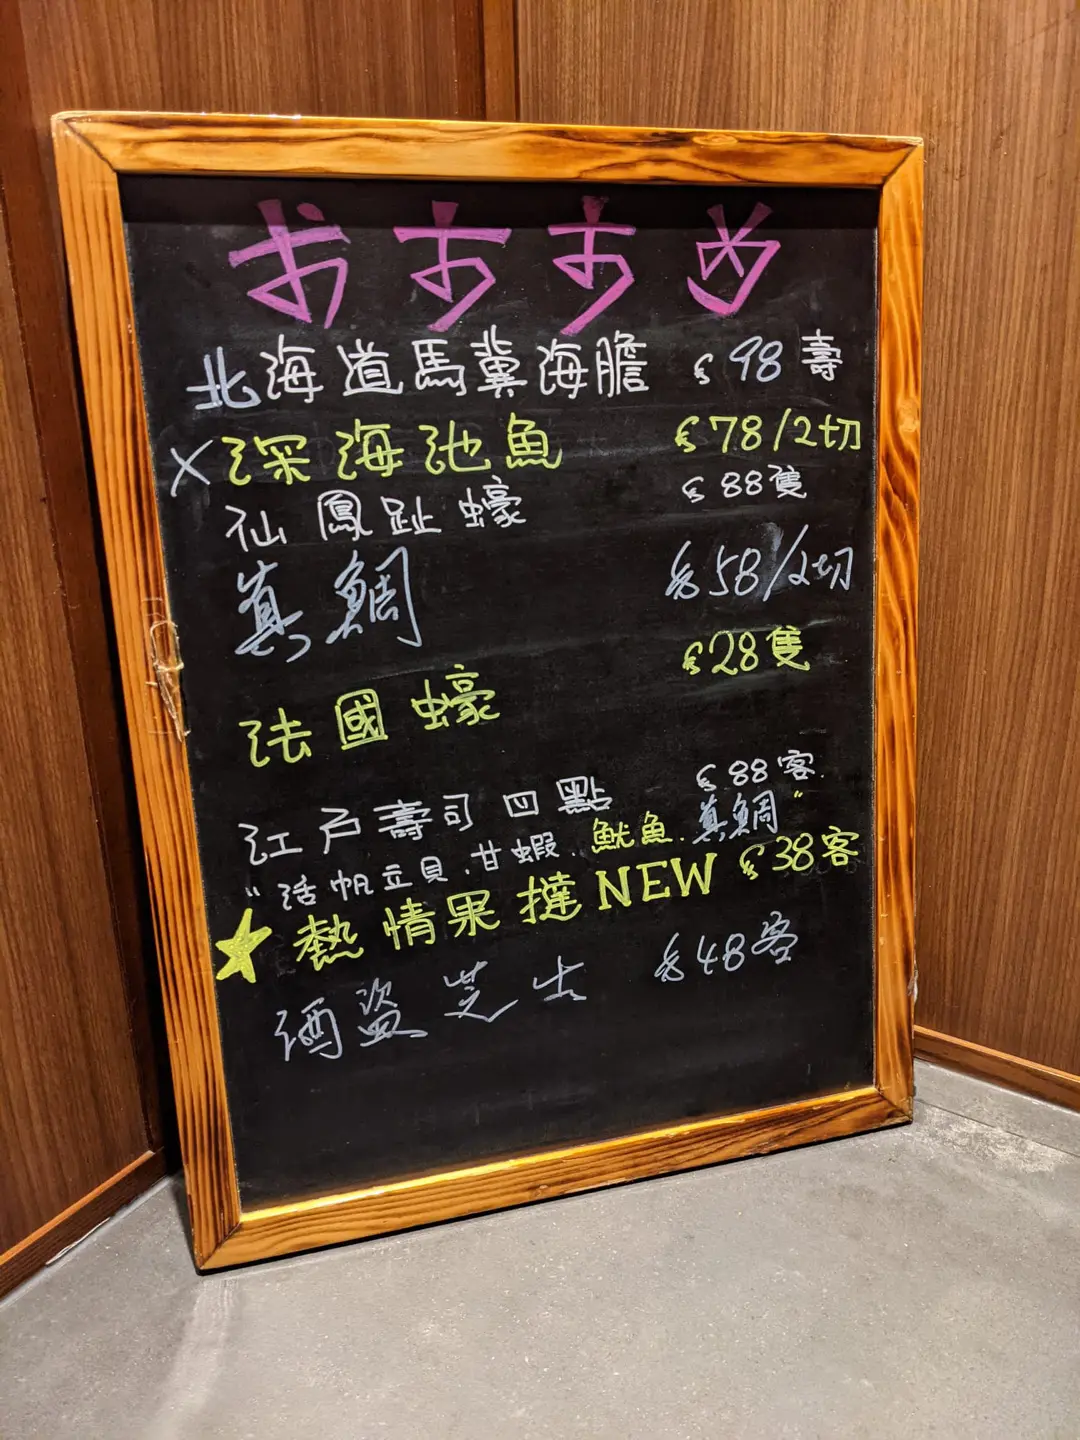 おすすめ
北海道馬糞海膽 $98壽
X深海池魚 $78/2切
仙鳳趾蠔 $88隻
真鯛 $58/2切
法國蠔 $28隻
江戶壽司四點 $88客
"活帆立貝.甘蝦.魷魚.真鯛"
★熱情果撻NEW $38客
酒盜芝士 $48客